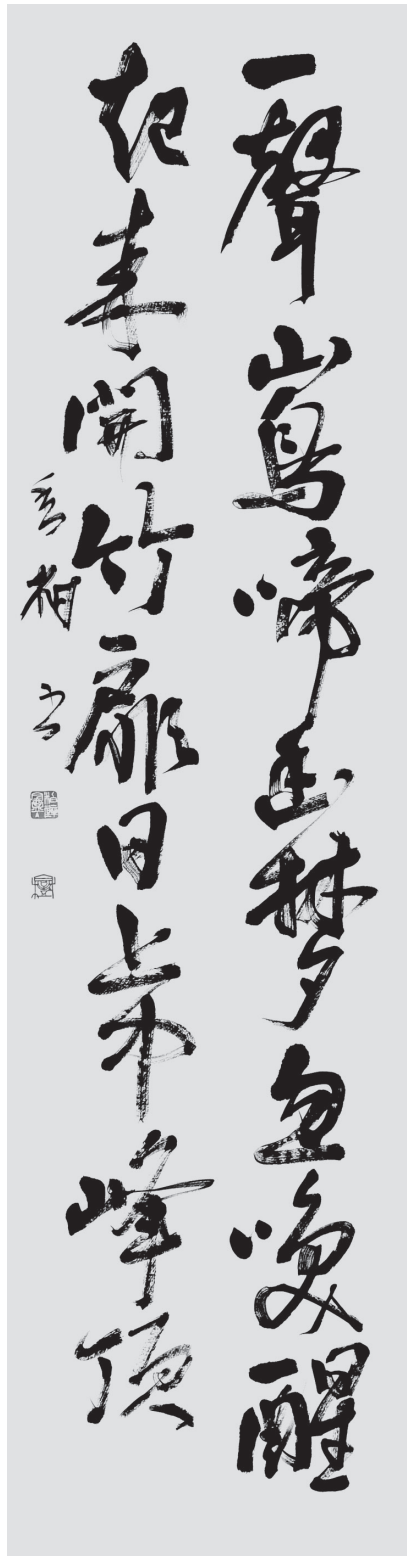 一聲山鳥啼幽梦忽喚醒
起来開竹扉日上東峰頂